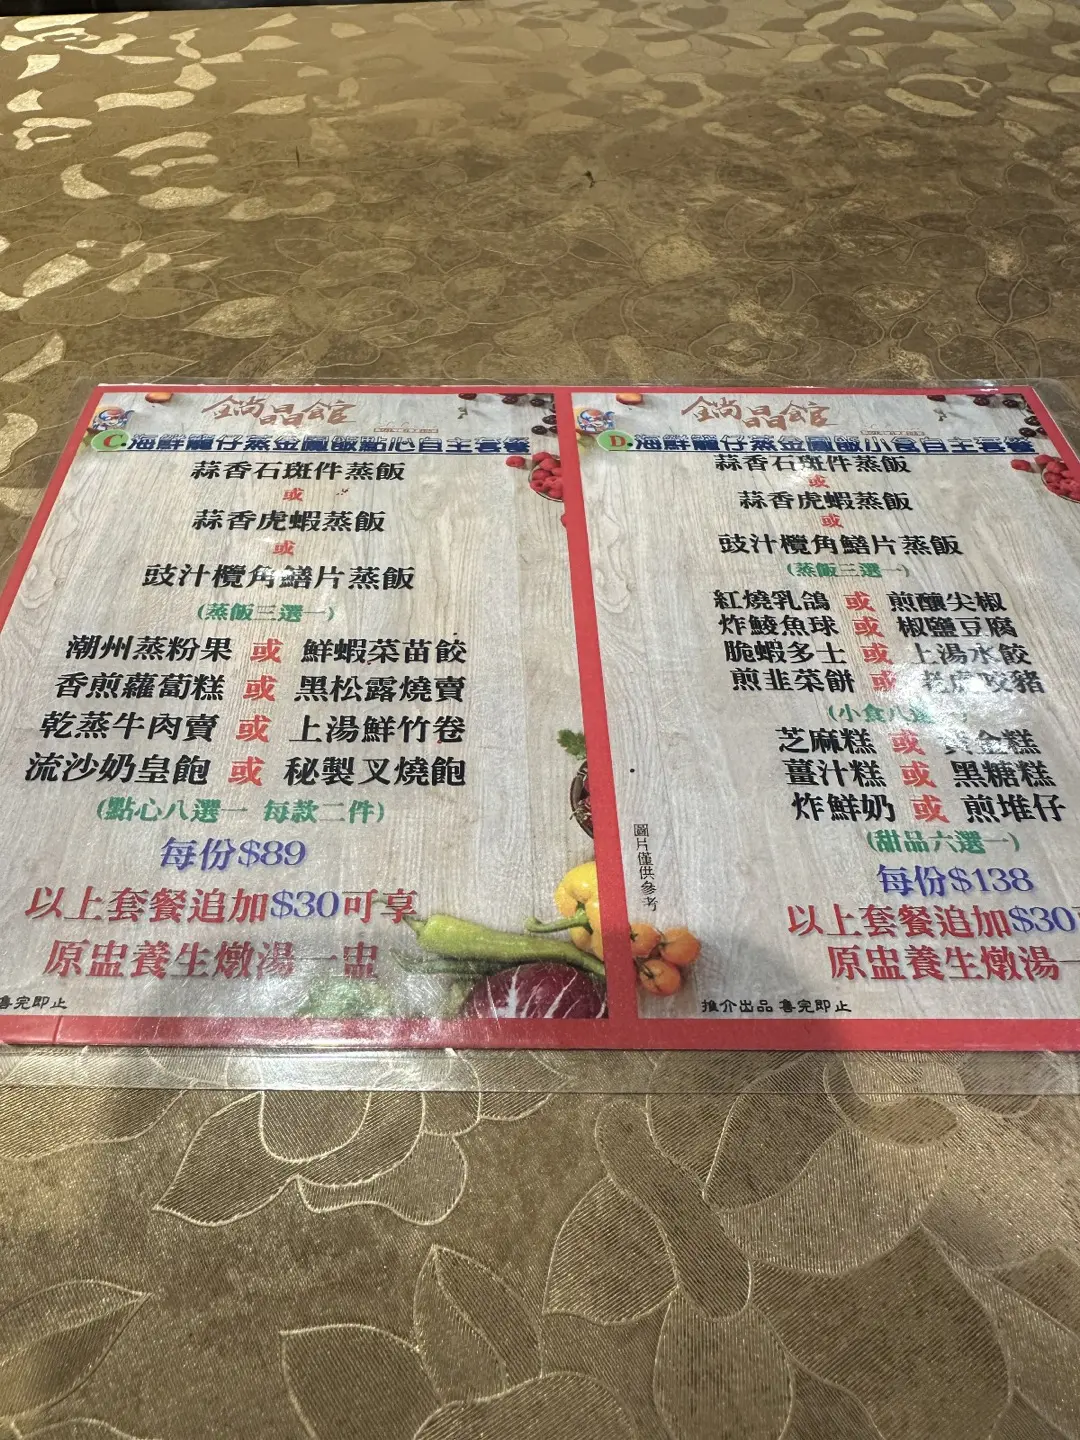 鍋晶館
C. 海鮮籠仔蒸金鳳飯點心自主套餐
蒜香石斑件蒸飯
或
蒜香虎蝦蒸飯
或
豉汁欖角鱔片蒸飯
(蒸飯三選一)
潮州蒸粉果 或 鮮蝦菜苗餃
香煎蘿蔔糕 或 黑松露燒賣
乾蒸牛肉賣 或 上湯鮮竹卷
流沙奶皇飽 或 秘製叉燒飽
(點心八選一 每款二件)
每份$89
以上套餐追加$30可享
原盅養生燉湯一盅
售完即止
鍋晶館
D. 海鮮籠仔蒸金鳳飯小食自主套餐
蒜香石斑件蒸飯
或
蒜香虎蝦蒸飯
或
豉汁欖角鱔片蒸飯
(蒸飯三選一)
紅燒乳鴿 或 煎釀尖椒
炸鯪魚球 或 椒鹽豆腐
脆蝦多士 或 上湯水餃
煎韭菜餅 或 老虎咬豬
(小食八選一)
芝麻糕 或 黃金糕
薑汁糕 或 黑糖糕
炸鮮奶 或 煎堆仔
(甜品六選一)
每份$138
以上套餐追加$30
原盅養生燉湯一
圖片僅供參考
推介出品 售完即止